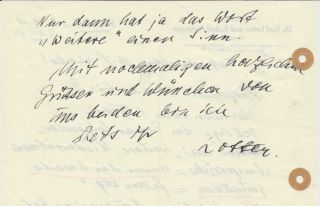 Nur dann hat ja das Wort
"weitere" einen Sinn.
Mit nochmaligen herzlichen
Grüssen und Wünschen von
uns beiden bin ich
stets Ihr